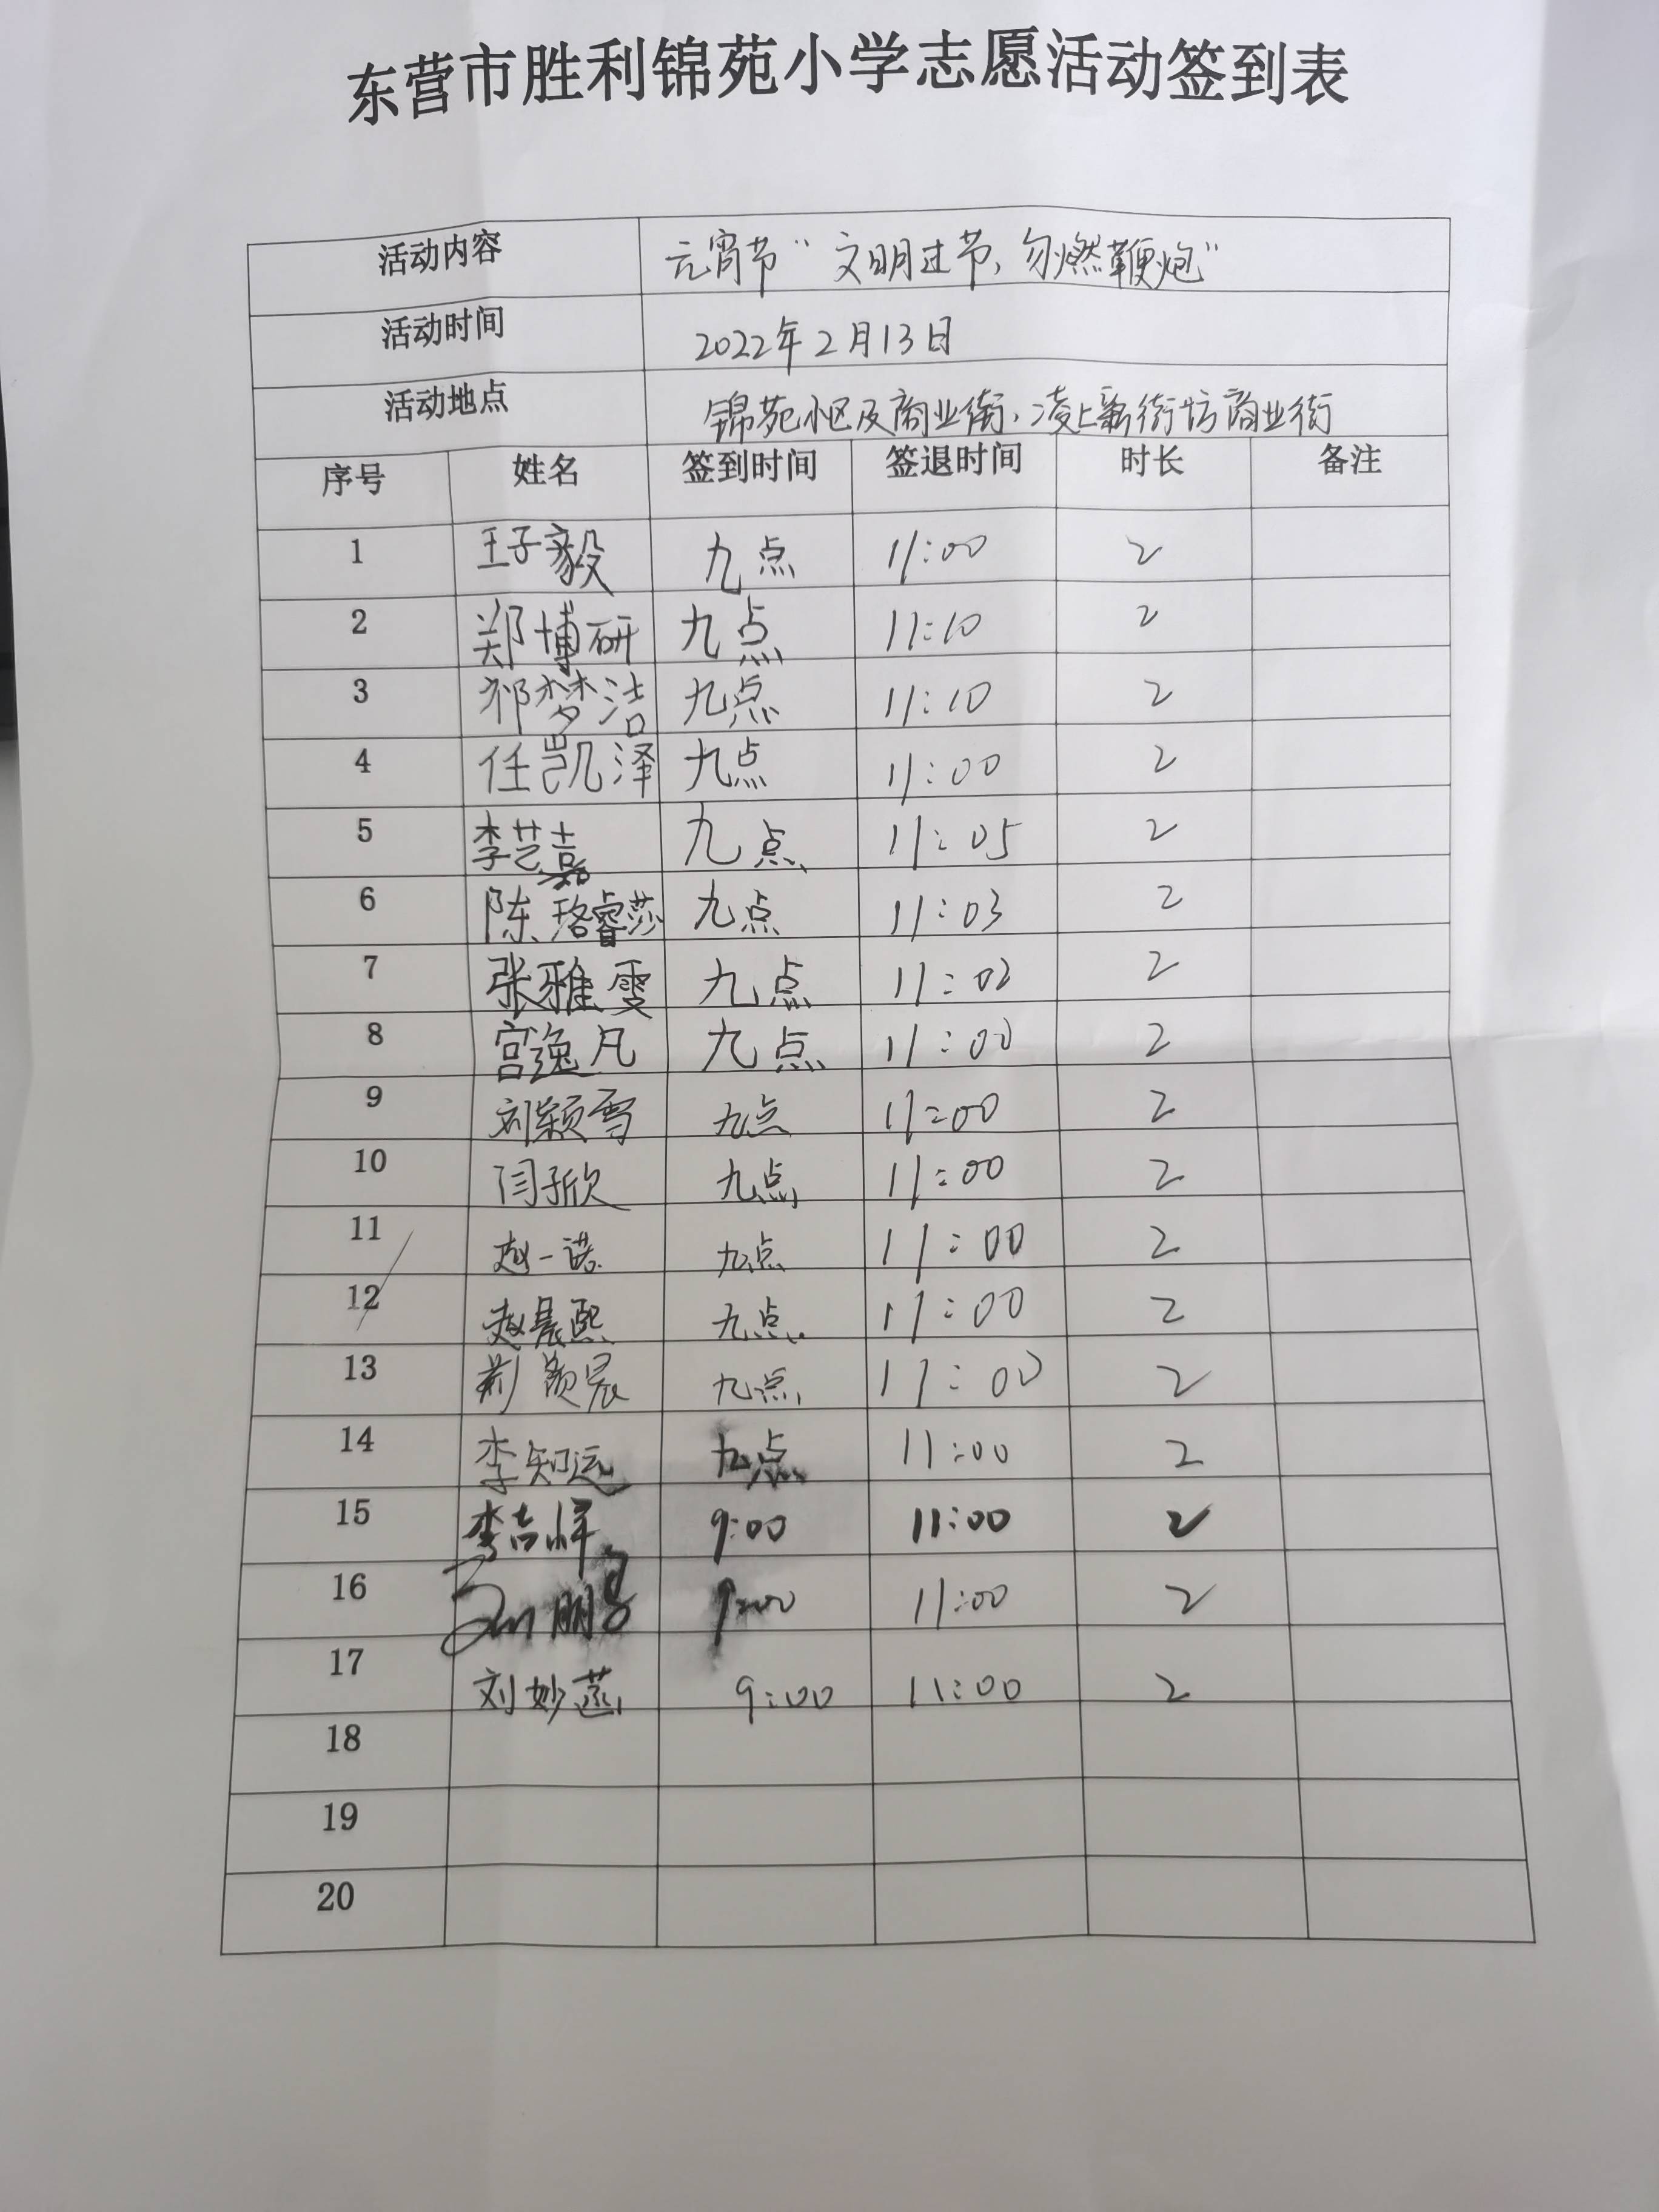 东营市胜利锦苑小学志愿活动签到表
活动内容 元宵节“文明过节,勿燃鞭炮”
活动时间 2022年2月13日
活动地点 锦苑小区及商业街,凌上新街坊商业街
序号 姓名 签到时间 签退时间 时长 备注
1 王子毅 九点 11:00 2
2 郑博研 九点 11:10 2
3 祁梦洁 九点 11:10 2
4 任凯泽 九点 11:00 2
5 李艺嘉 九点 11:05 2
6 陈珞睿莎 九点 11:03 2
7 张雅雯 九点 11:02 2
8 宫逸凡 九点 11:00 2
9 刘颖雪 九点 11:00 2
10 闫子欣 九点 11:00 2
11 赵一诺 九点 11:00 2
12 赵晨熙 九点 11:00 2
13 荆颜晨 九点 11:00 2
14 李知远 九点 11:00 2
15 李吉祥 9:00 11:00 2
16 9:00 11:00 2
17 刘妙菡 9:00 11:00 2
18
19
20